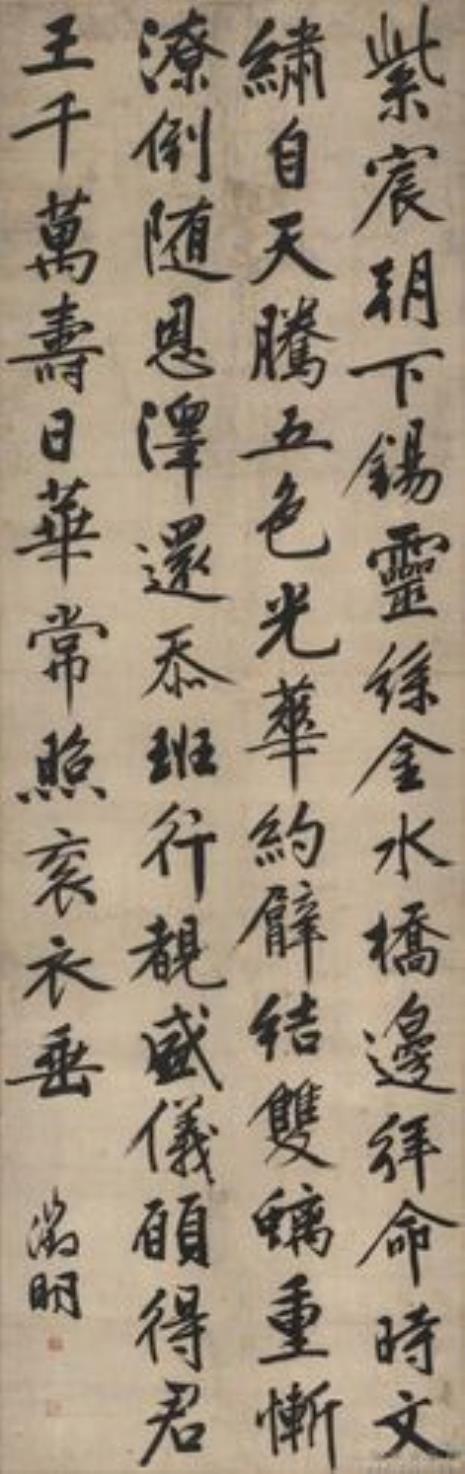 紫宸朝下錫靈絲金水橋邊拜命時文
繡自天騰五色光華約臂結雙螭重慚
潦倒隨恩澤還忝班行覩盛儀願得君
王千萬壽日華常照袞衣垂
徵明